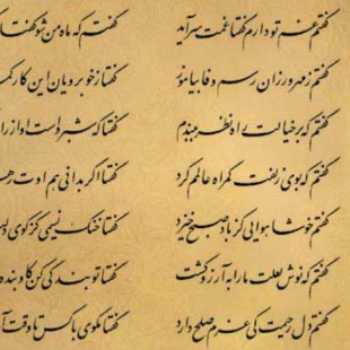 گفتم غم تو دارم گفتا غمت سر آید گفتم که ماه من شو گفتا
گفتم ز مهرورزان رسم وفا بیاموز گفتا ز خوبرویان این کار کم
گفتم که بر خیالت راه نظر ببندم گفتا که شبرو است او از
گفتم که بوی زلفت گمراه عالمم کرد گفتا اگر بدانی هم اوت
گفتم خوشا هوایی کز باد صبح خیزد گفتا خنک نسیمی کز کوی
گفتم که نوش لعلت ما را به آرزو کشت گفتا تو بندگی کن کاو بنده
گفتم دل رحیمت کی عزم صلح دارد گفتا مگوی با کس تا وقت